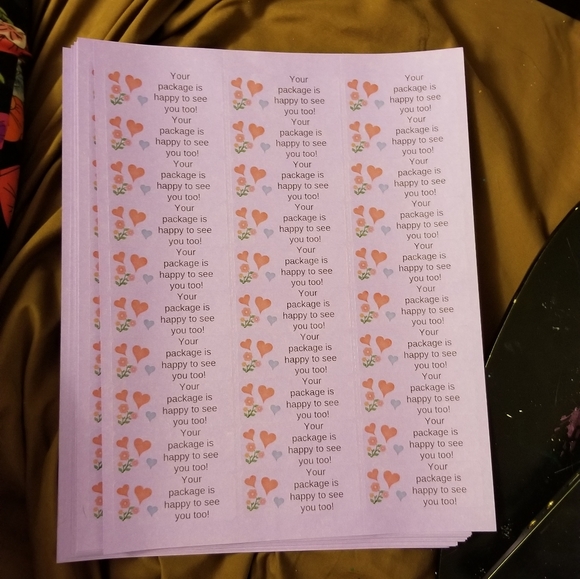 Your
package is
happy to see
you too!
Your
package is
happy to see
you too!
Your
package is
happy to see
you too!
Your
package is
happy to see
you too!
Your
package is
happy to see
you too!
Your
package is
happy to see
you too!
Your
package is
happy to see
you too!
Your
package is
happy to see
you too!
Your
package is
happy to see
you too!
Your
package is
happy to see
you too!
Your
package is
happy to see
you too!
Your
package is
happy to see
you too!
Your
package is
happy to see
you too!
Your
package is
happy to see
you too!
Your
package is
happy to see
you too!
Your
package is
happy to see
you too!
Your
package is
happy to see
you too!
Your
package is
happy to see
you too!
Your
package is
happy to see
you too!
Your
package is
happy to see
you too!
Your
package is
happy to see
you too!
Your
package is
happy to see
you too!
Your
package is
happy to see
you too!
Your
package is
happy to see
you too!
Your
package is
happy to see
you too!
Your
package is
happy to see
you too!
Your
package is
happy to see
you too!
Your
package is
happy to see
you too!
Your
package is
happy to see
you too!
Your
package is
happy to see
you too!